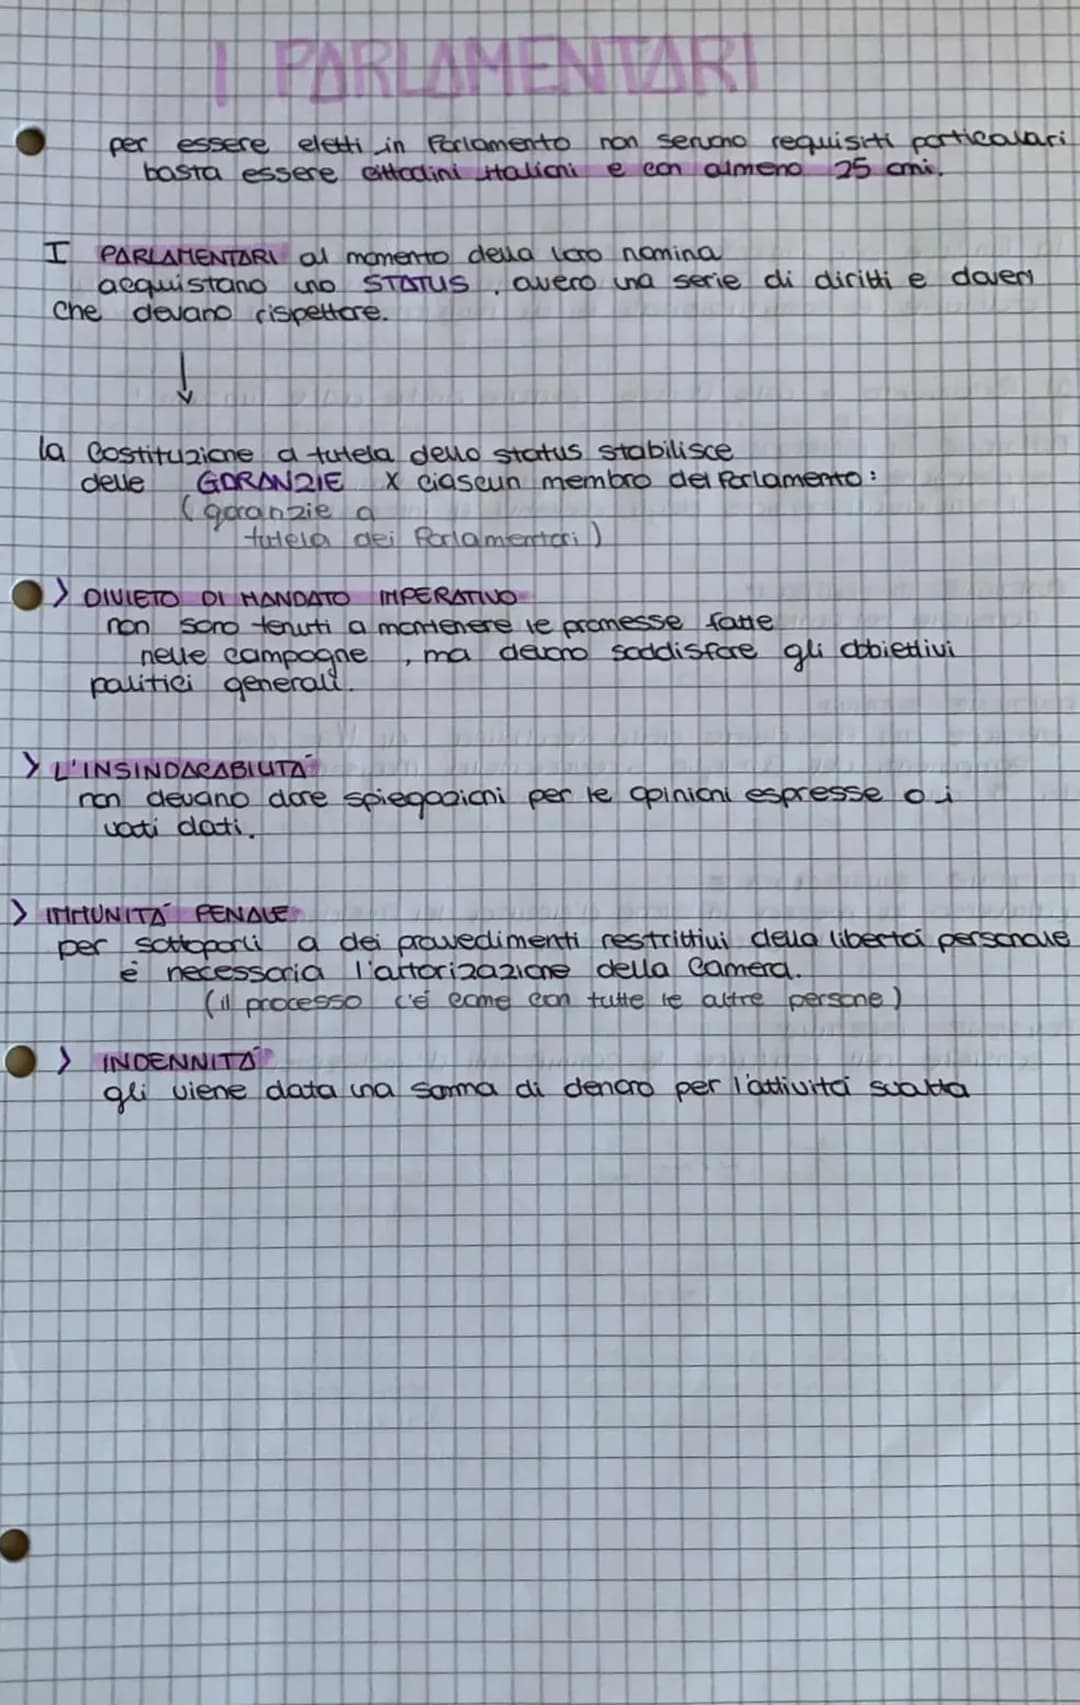 I PARLAMENTARI
per essere eletti in Parlamento non servono requisiti particolari
basta essere cittadini italiani e con almeno 25 anni.
I PARLAMENTARI al momento della loro nomina
acquistano uno STATUS, avero una serie di diritti e doveri
che devono rispettare.
la Costituzione a tutela dello status stabilisce
delle GARANZIE X ciascun membro del Parlamento:
(garanzie a
tutela dei Parlamentari)
> DIVIETO DI MANDATO IMPERATIVO
non sono tenuti a mantenere le promesse fatte
nelle campagne, ma devono soddisfare gli obbiettivi
politici generali.
> L'INSINDACABILITÀ
non devono dare spiegazioni per le opinioni espresse o i
voti dati.
> IMMUNITÀ PENALE
per sottoporli a dei provvedimenti restrittivi della libertà personale
è necessaria l'autorizazione della Camera.
(il processo c'è come con tutte le altre persone)
> INDENNITÀ
gli viene data una somma di denaro per l'attività svolta